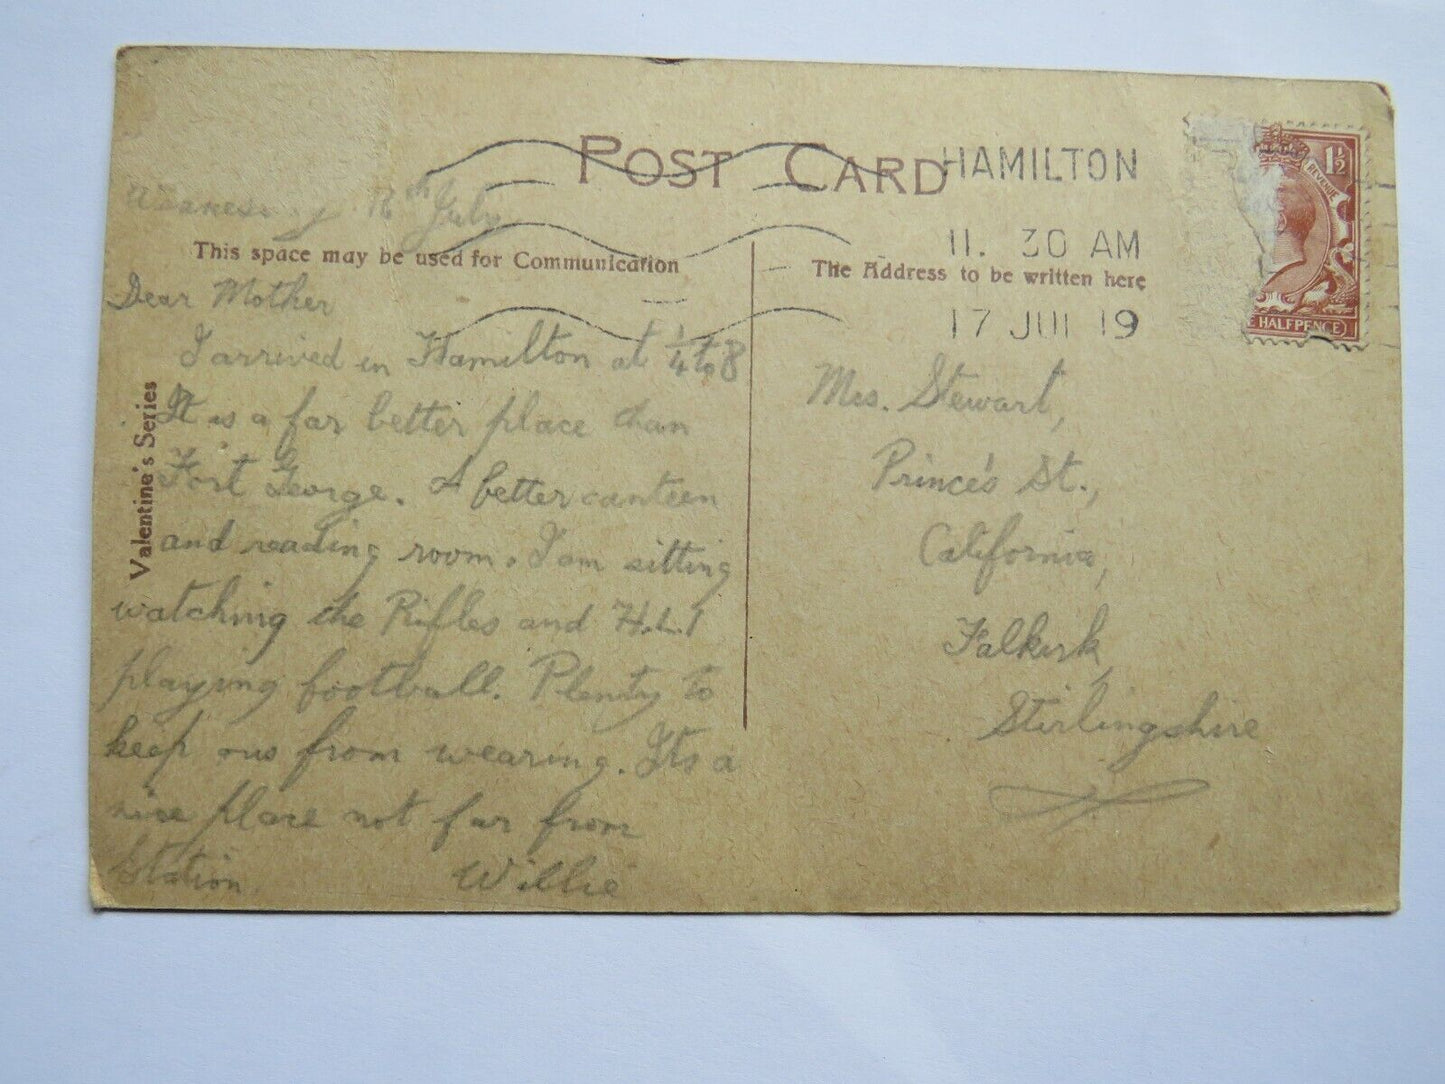 POST CARD
HAMILTON
11. 30 AM
17 JUL 19
1½
REVENUE
HALFPENCE
This space may be used for Communication
The Address to be written here
Valentine's Series
Wednesday 16th July
Dear Mother
I arrived in Hamilton at ¼ to 8
It is a far better place than
Fort George. A better canteen
and reading room. I am sitting
watching the Rifles and H.L.I
playing football. Plenty to
keep ous from wearing. Its a
nice place not far from
Station
Willie
Mrs. Stewart,
Prince's St.,
California,
Falkirk,
Stirlingshire